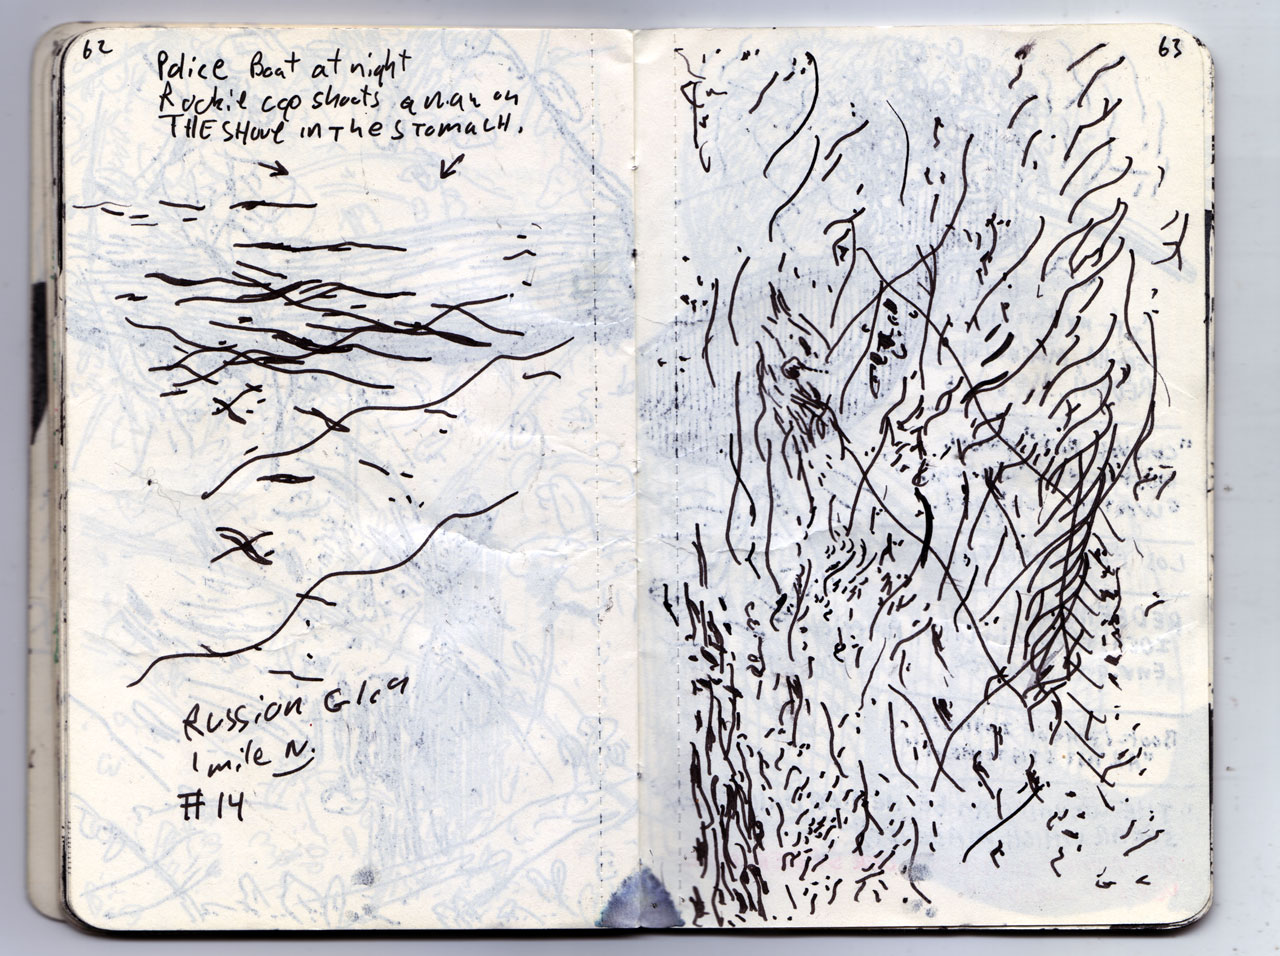 62
Police Boat at night
Rookie cop shoots a man on
THE SHORE in The STOMACH.
Russion Glen
1 mile N.
#14
63